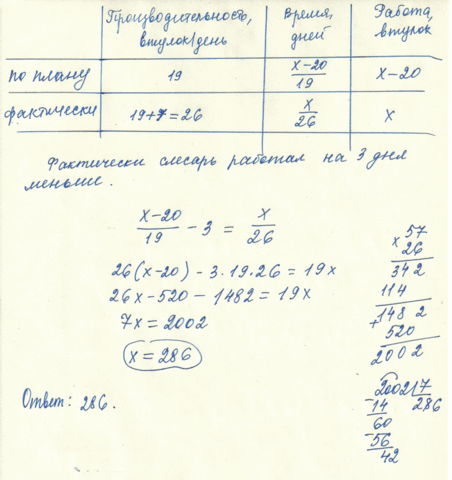 Производительность, втулок/день
Время, дней
Работа, втулок
по плану 19 (x-20)/19 x-20
фактически 19+7=26 x/26 x
Фактически слесарь работал на 3 дня
меньше.
(x-20)/19 - 3 = x/26
26(x-20) - 3·19·26 = 19x
26x-520-1482 = 19x
7x = 2002
x = 286
Ответ: 286.
57
x 26
342
114
1482
+ 520
2002
2002 7
-14 286
60
-56
42